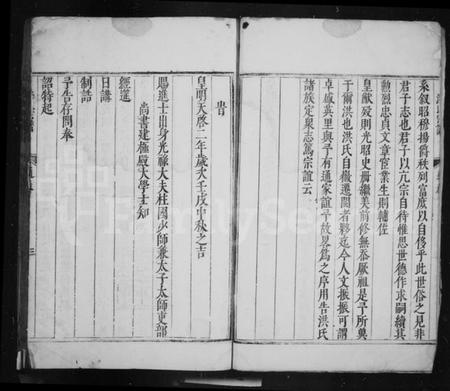 系叙昭穆揚爵秩列富庶以自侈乎此世俗之見非
君子志也君子以亢宗自待惟思世德作求嗣續其
勲烈忠貞文章宦業生則輔佐
皇猷殁則光昭史冊繼美前修無忝厥祖是予所與
于爾洪也洪氏自徽遷閩者夥迄今人文振振可謂
卓越英里與予有通家誼予故見為之序用告洪氏
諸族定氣志篤宗誼云
旹
皇明天啓二年歲次壬戌中秋之吉
賜進士出身光祿大夫柱國少師兼太子太師吏部
尚書建極殿大學士知
經筵
日講
制誥
予告存問奉
詔特起